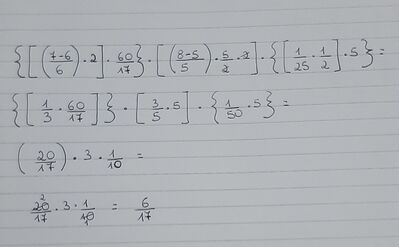 {[((7-6)/6) · 2] · 60/17} · [((8-5)/5) · 5/2 · 2] · {[1/25 · 1/2] · 5} =
{[1/3 · 60/17]} · [3/5 · 5] · {1/50 · 5} =
(20/17) · 3 · 1/10 =
2 20/17 · 3 · 1/10 1 = 6/17